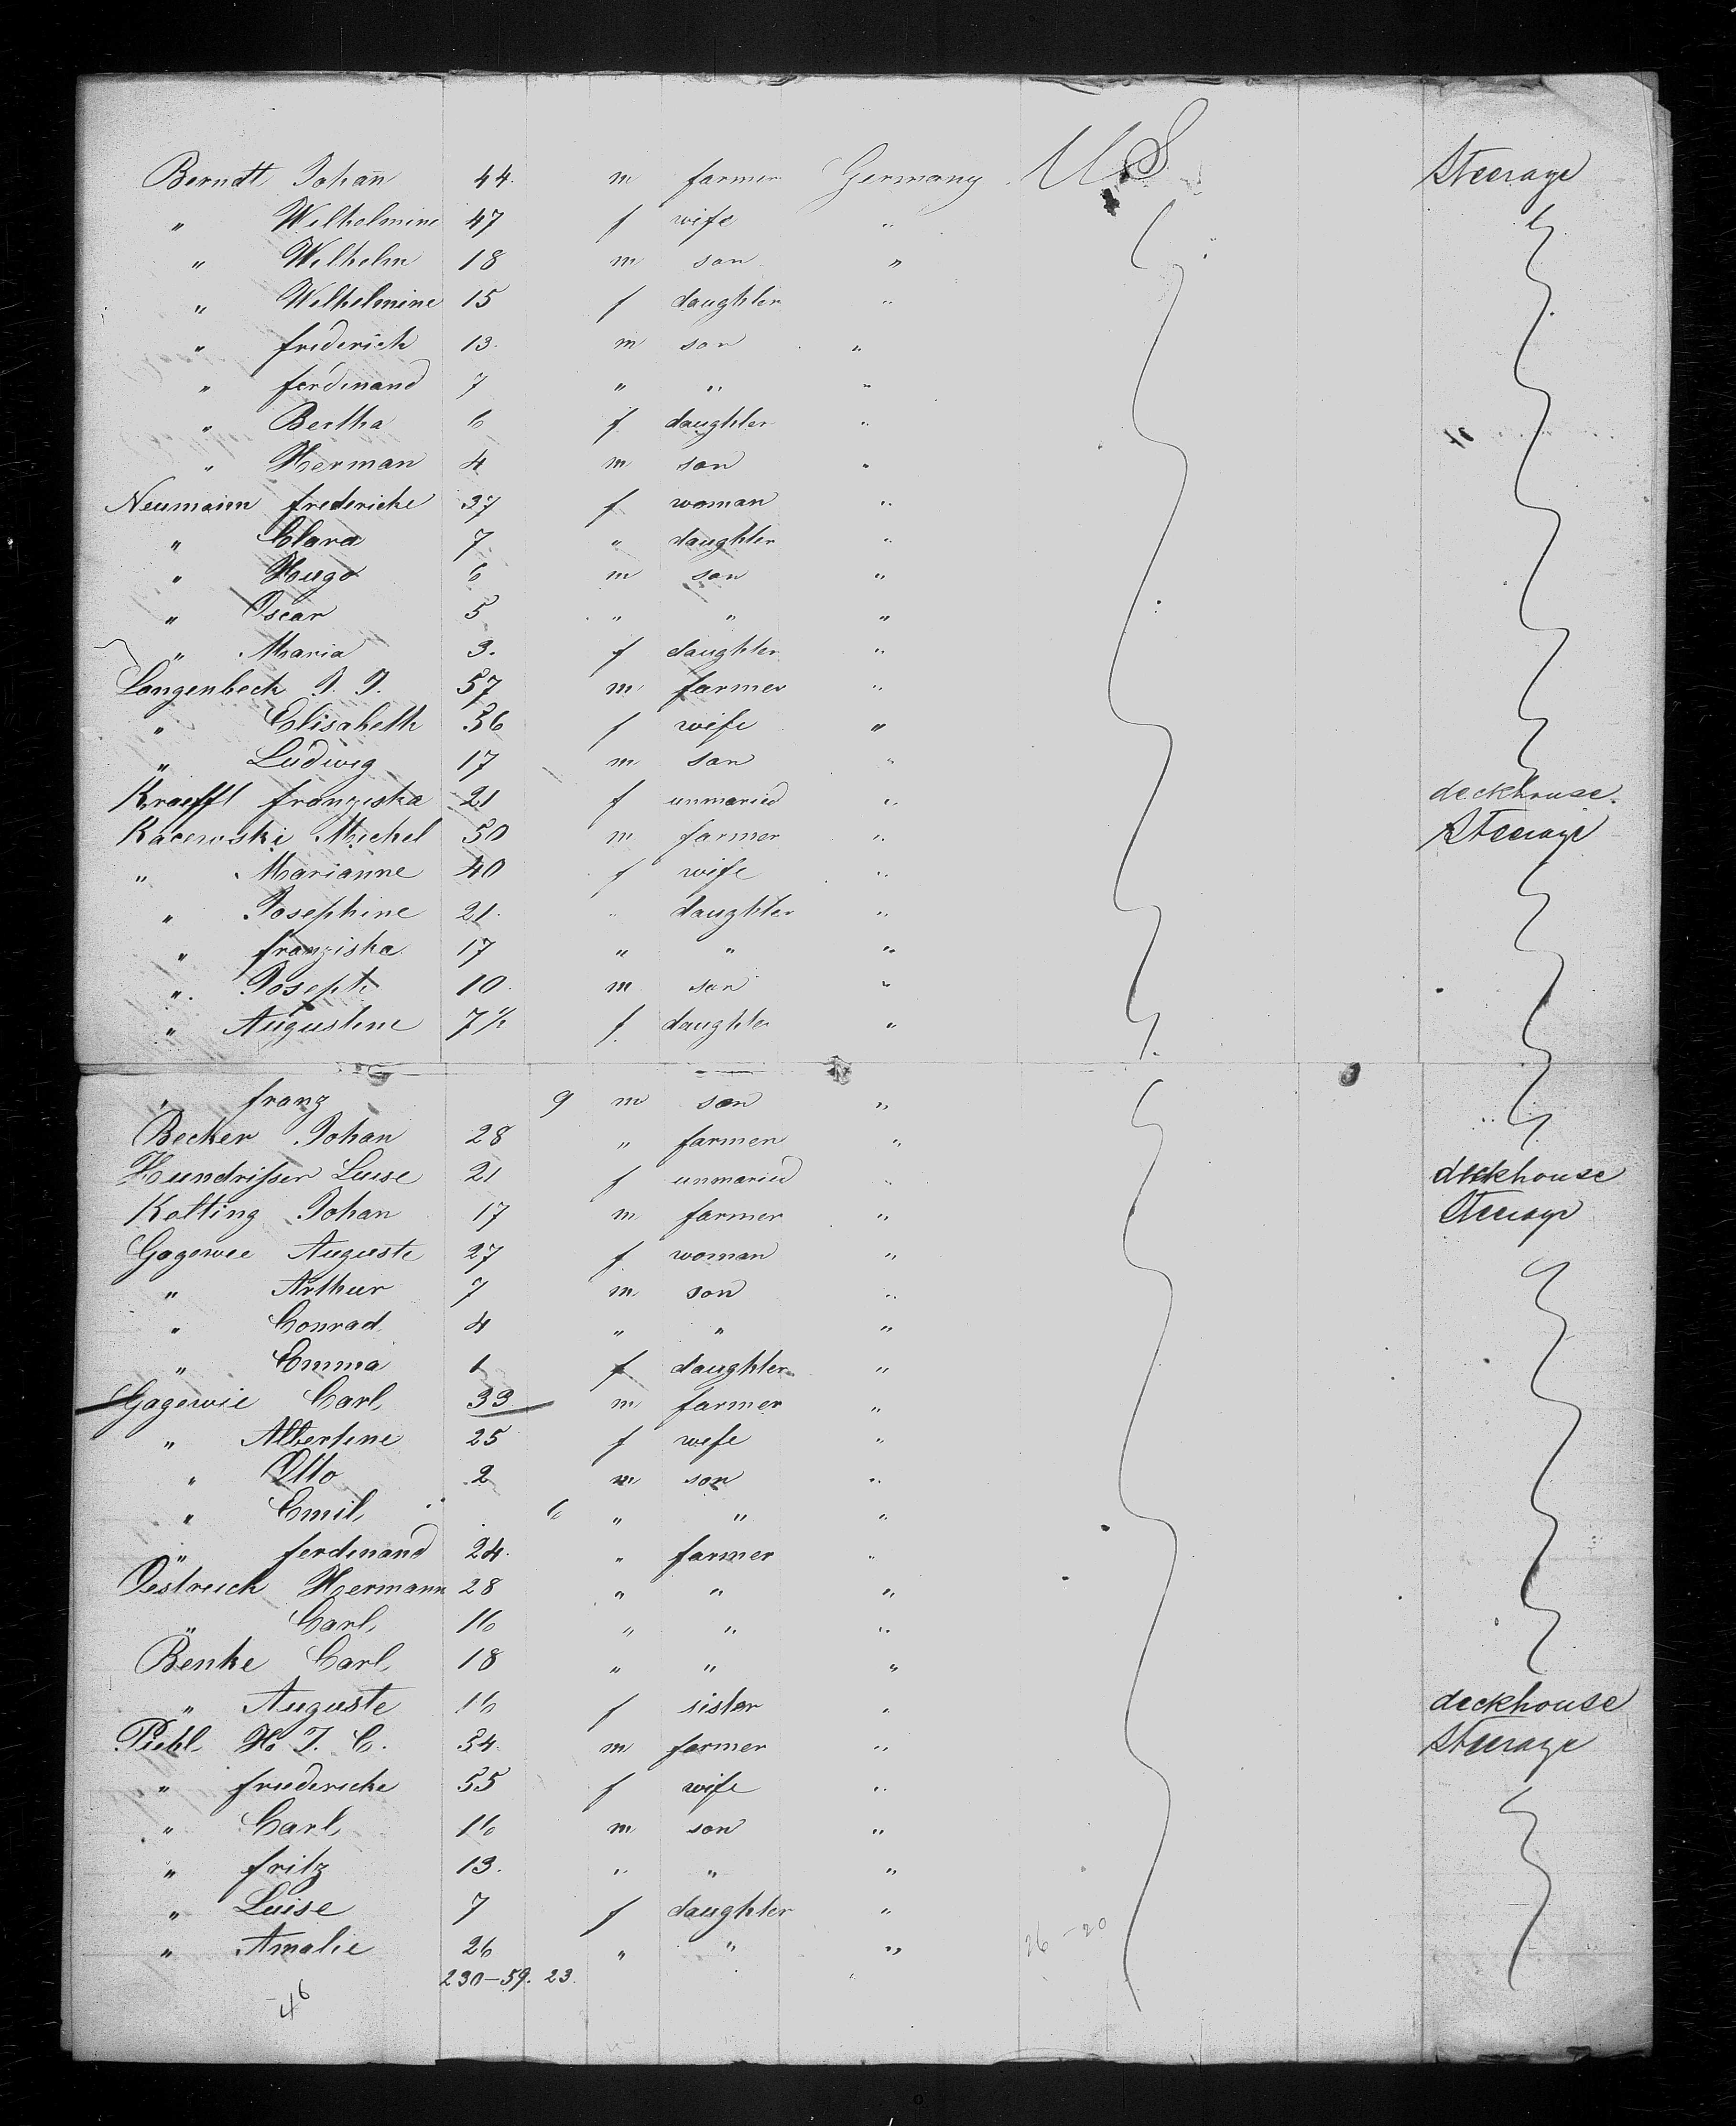 Berndt Johan̄ 44. m farmer Germany U S Steerage
" Wilhelmine 47 f wife "
" Wilhelm 18 m son "
" Wilhelmine 15 f daughter "
" frederich 13. m son "
" ferdinand 7 " " "
" Bertha 6 f daughter "
" Herman 4 m son "
Neumann frederiche 37 f woman "
" Clara 7 " daughter "
" Hugo 6 m son "
" Oscar 5 " " "
" Maria 3. f daughter "
Langenbeck J. J. 57 m farmer "
" Elisabeth 56 f wife "
" Ludwig 17 m son "
Kraefft franziska 21 f unmaried " deckhouse.
Kacewski Michel 50 m farmer " Steerage
" Marianne 40 f wife "
" Josephine 21. " daughter "
" franziska 17 " " "
" Joseph 10. m son "
" Augustine 7 ½ f. daughter "
" franz 9 m son "
Becker Johan 28 " farmer "
Hundrisser Luise 21 f unmaried " deckhouse
Kolting Johan 17 m farmer " Steerage
Gagewie Auguste 27 f woman "
" Arthur 7 m son "
" Conrad 4 " " "
" Emma 1 f daughter "
Gagewie Carl 33 m farmer "
" Albertine 25 f wife "
" Otto 2 m son "
" Emil 6 " " "
" ferdinand 24. " farmer "
Oestreich Hermann 28 " " "
" Carl 16 " " "
Benke Carl 18 " " "
" Auguste 16 f sister " deckhouse
Piehl H. J. C. 54. m farmer " Steerage
" friedericke 55 f wife "
" Carl 16 m son "
" fritz 13. " " "
" Luise 7 f daughter "
" Amalie 26 " " " 26 - 20
230 - 59. 23.
46